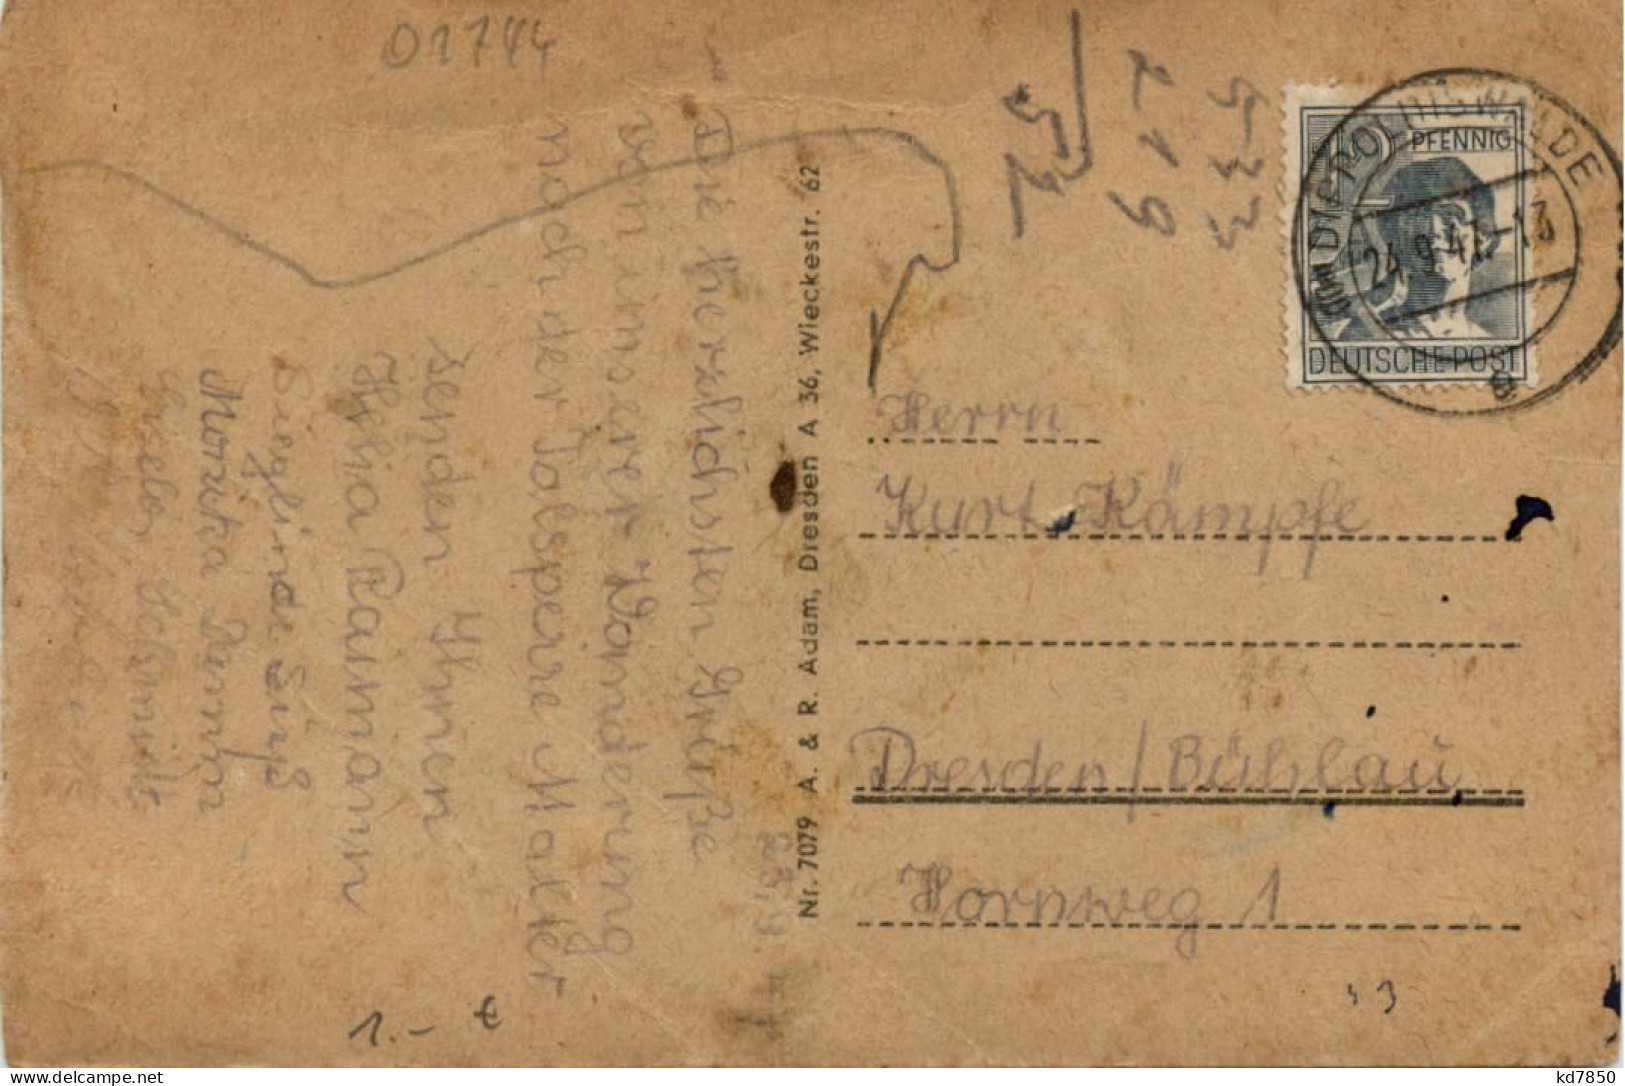 01744
23.9.47
Die herzlichsten Grüße
von unserer Wanderung
nach der Talsperre Malter
senden Ihnen
Raimann
Sieglinde Süß
Schmidt
Nr. 7079 A. & R. Adam, Dresden A 36, Wieckestr. 62
533
219
12 PFENNIG
DEUTSCHE POST
DIPPOLDISWALDE
24.9.47.-13
a
Herrn
Kurt Kämpfe
Dresden/Bühlau
Hornweg 1
1.- €
kd7850